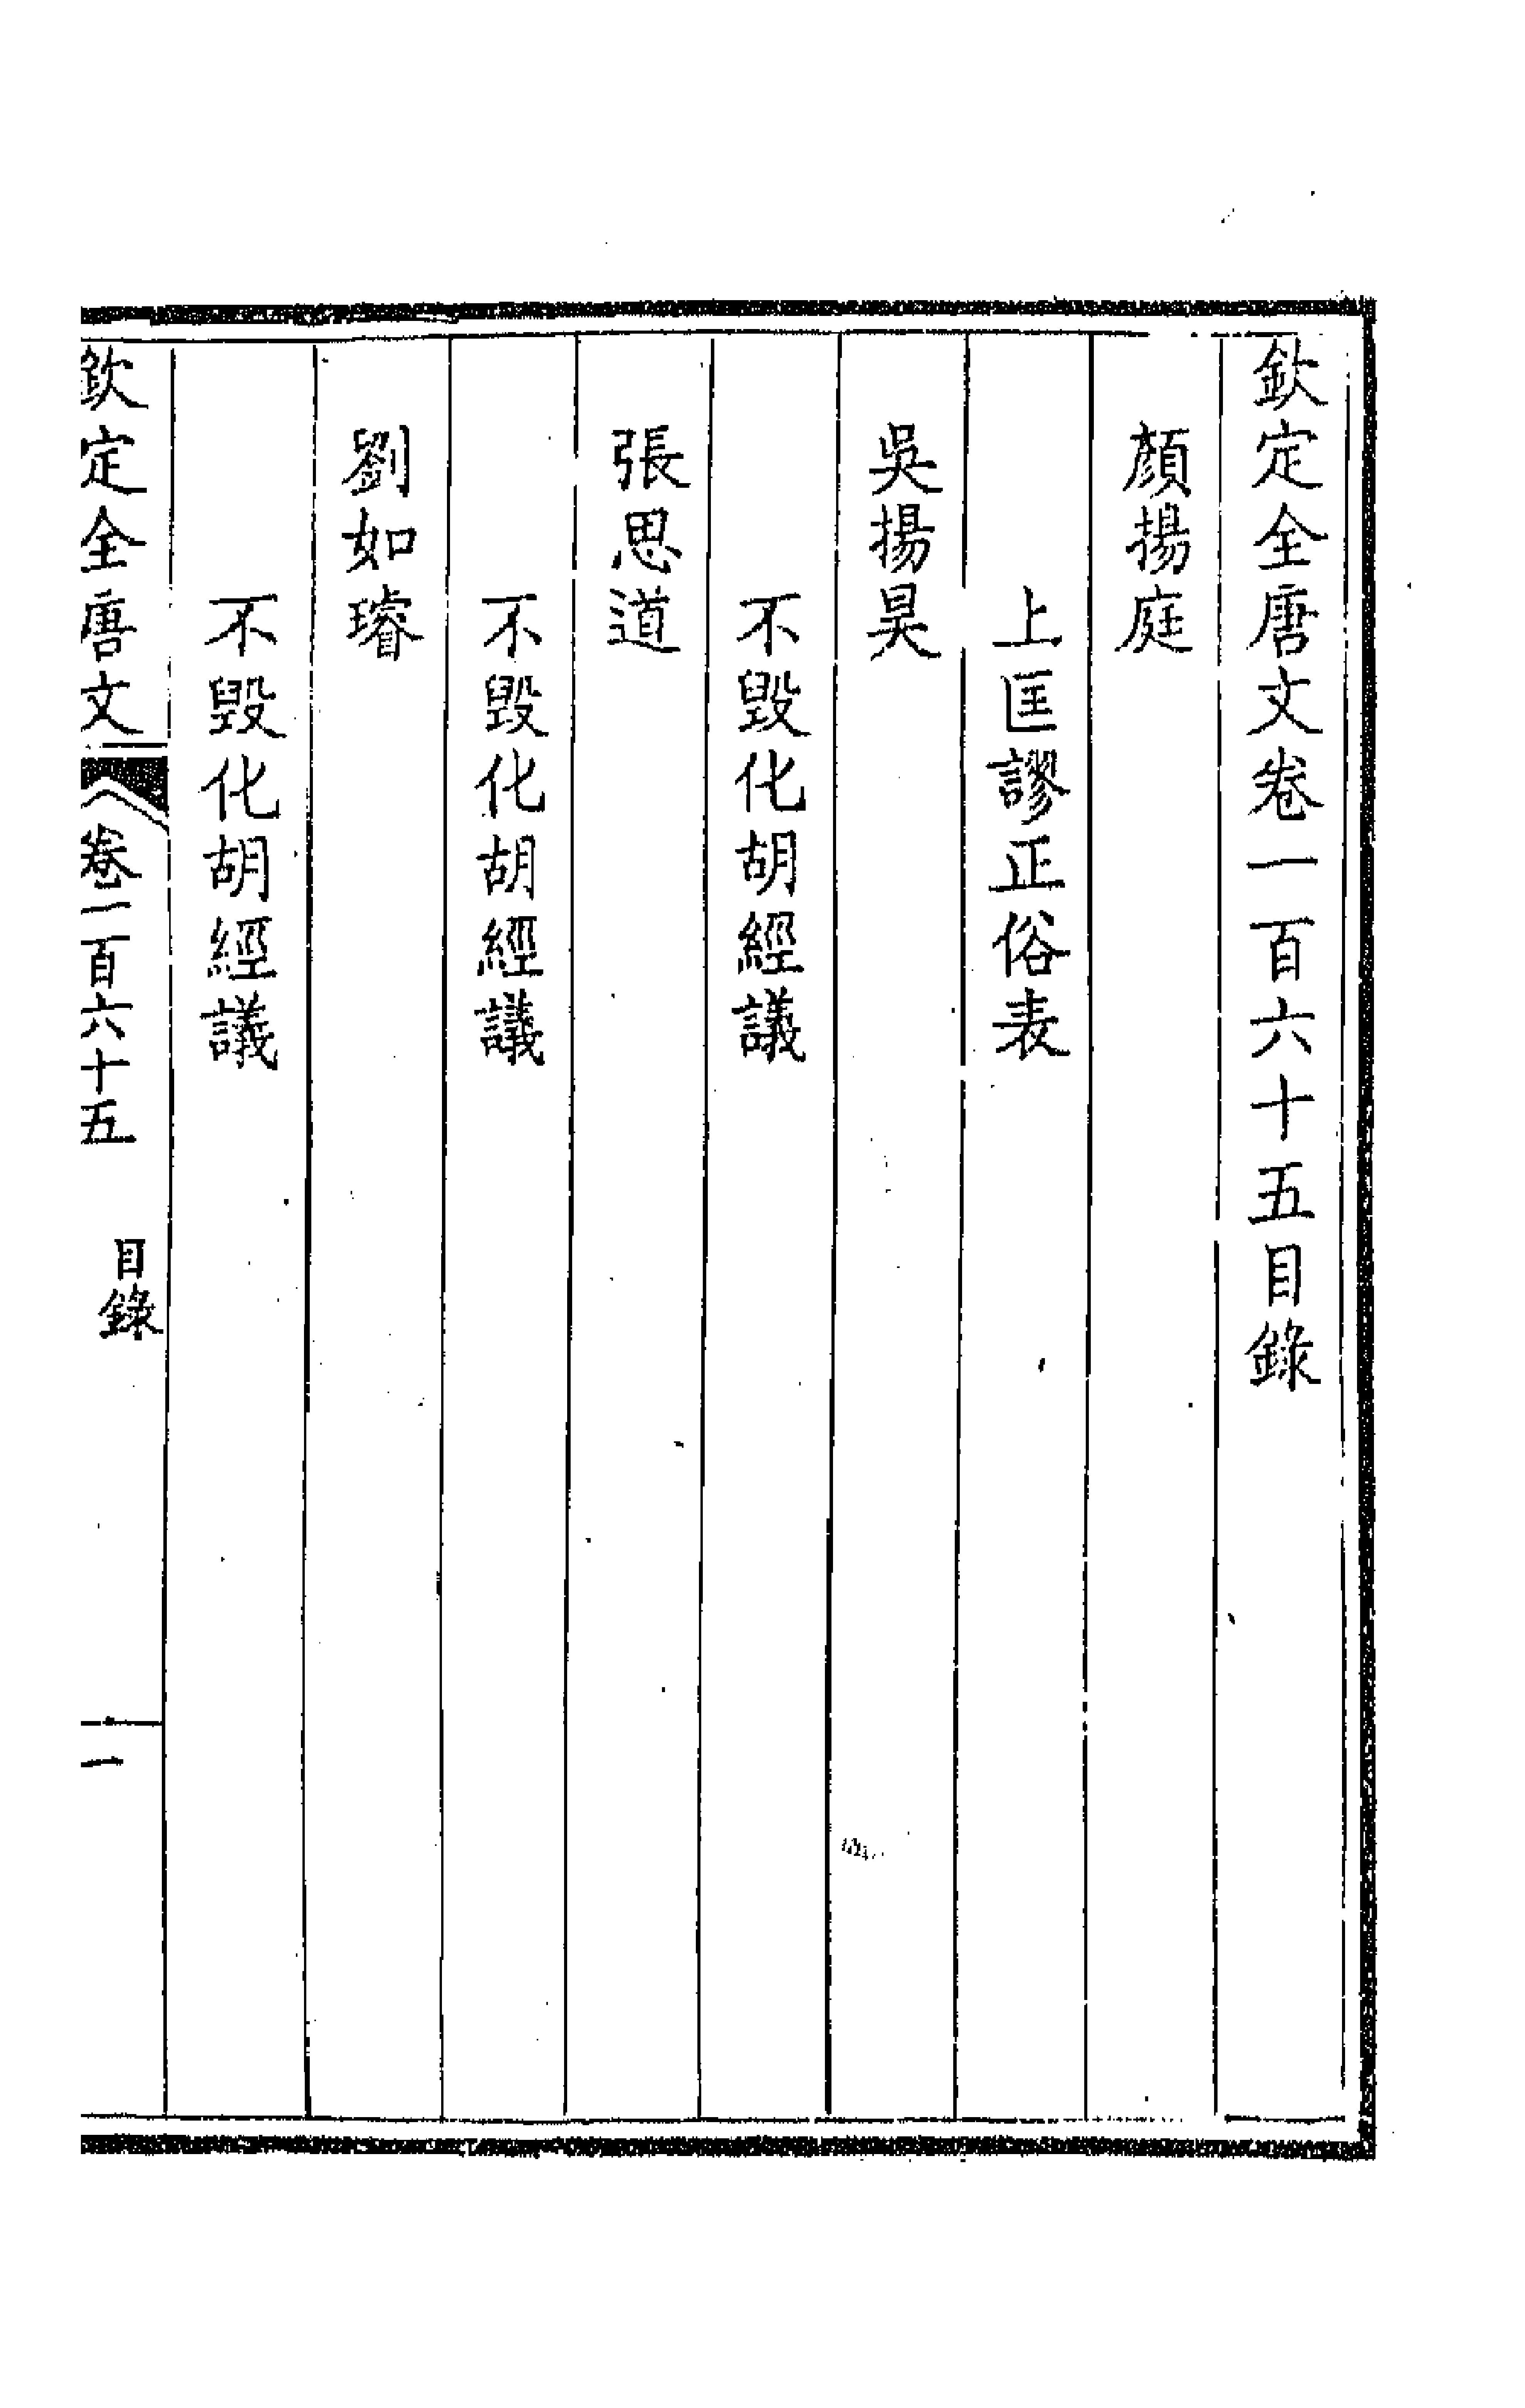 欽定全唐文卷一百六十五目錄
顏揚庭
上匡謬正俗表
吳揚昊
不毀化胡經議
張思道
不毀化胡經議
劉如璿
不毀化胡經議
欽定全唐文 卷一百六十五 目錄 一